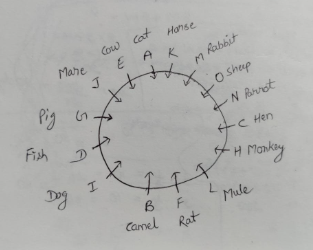 Cow E
Cat A
Horse K
M Rabbit
O Sheep
N Parrot
C Hen
H Monkey
L Mule
F Rat
B Camel
I Dog
D Fish
G Pig
J Mare